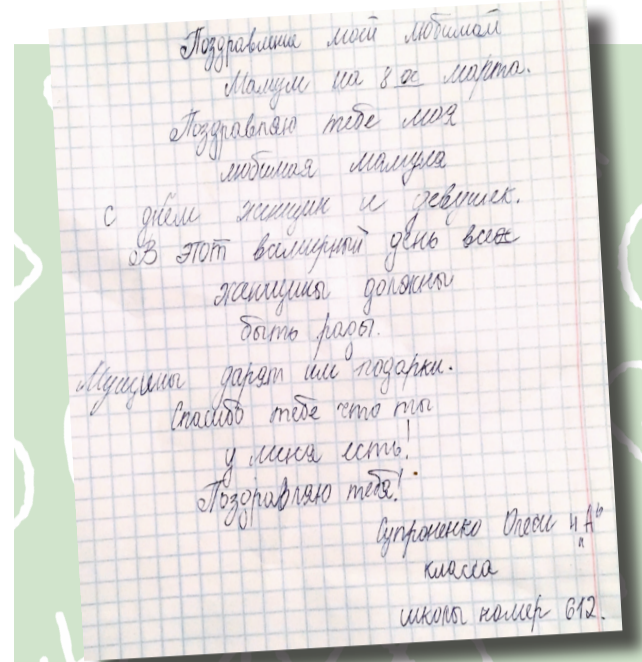 Поздравления моей любимой
Мамули на 8 ое марта.
Поздравляю тебе моя
любимая мамуля
с днём женщин и девушек.
В этот валшерный день все
женщины должны
быть рады.
Мущины дарят им подарки.
Спасибо тебе что ты
у меня есть!
Поздравляю тебя!
Супроненко Олеси 4 "А"
класса
школы номер 612.